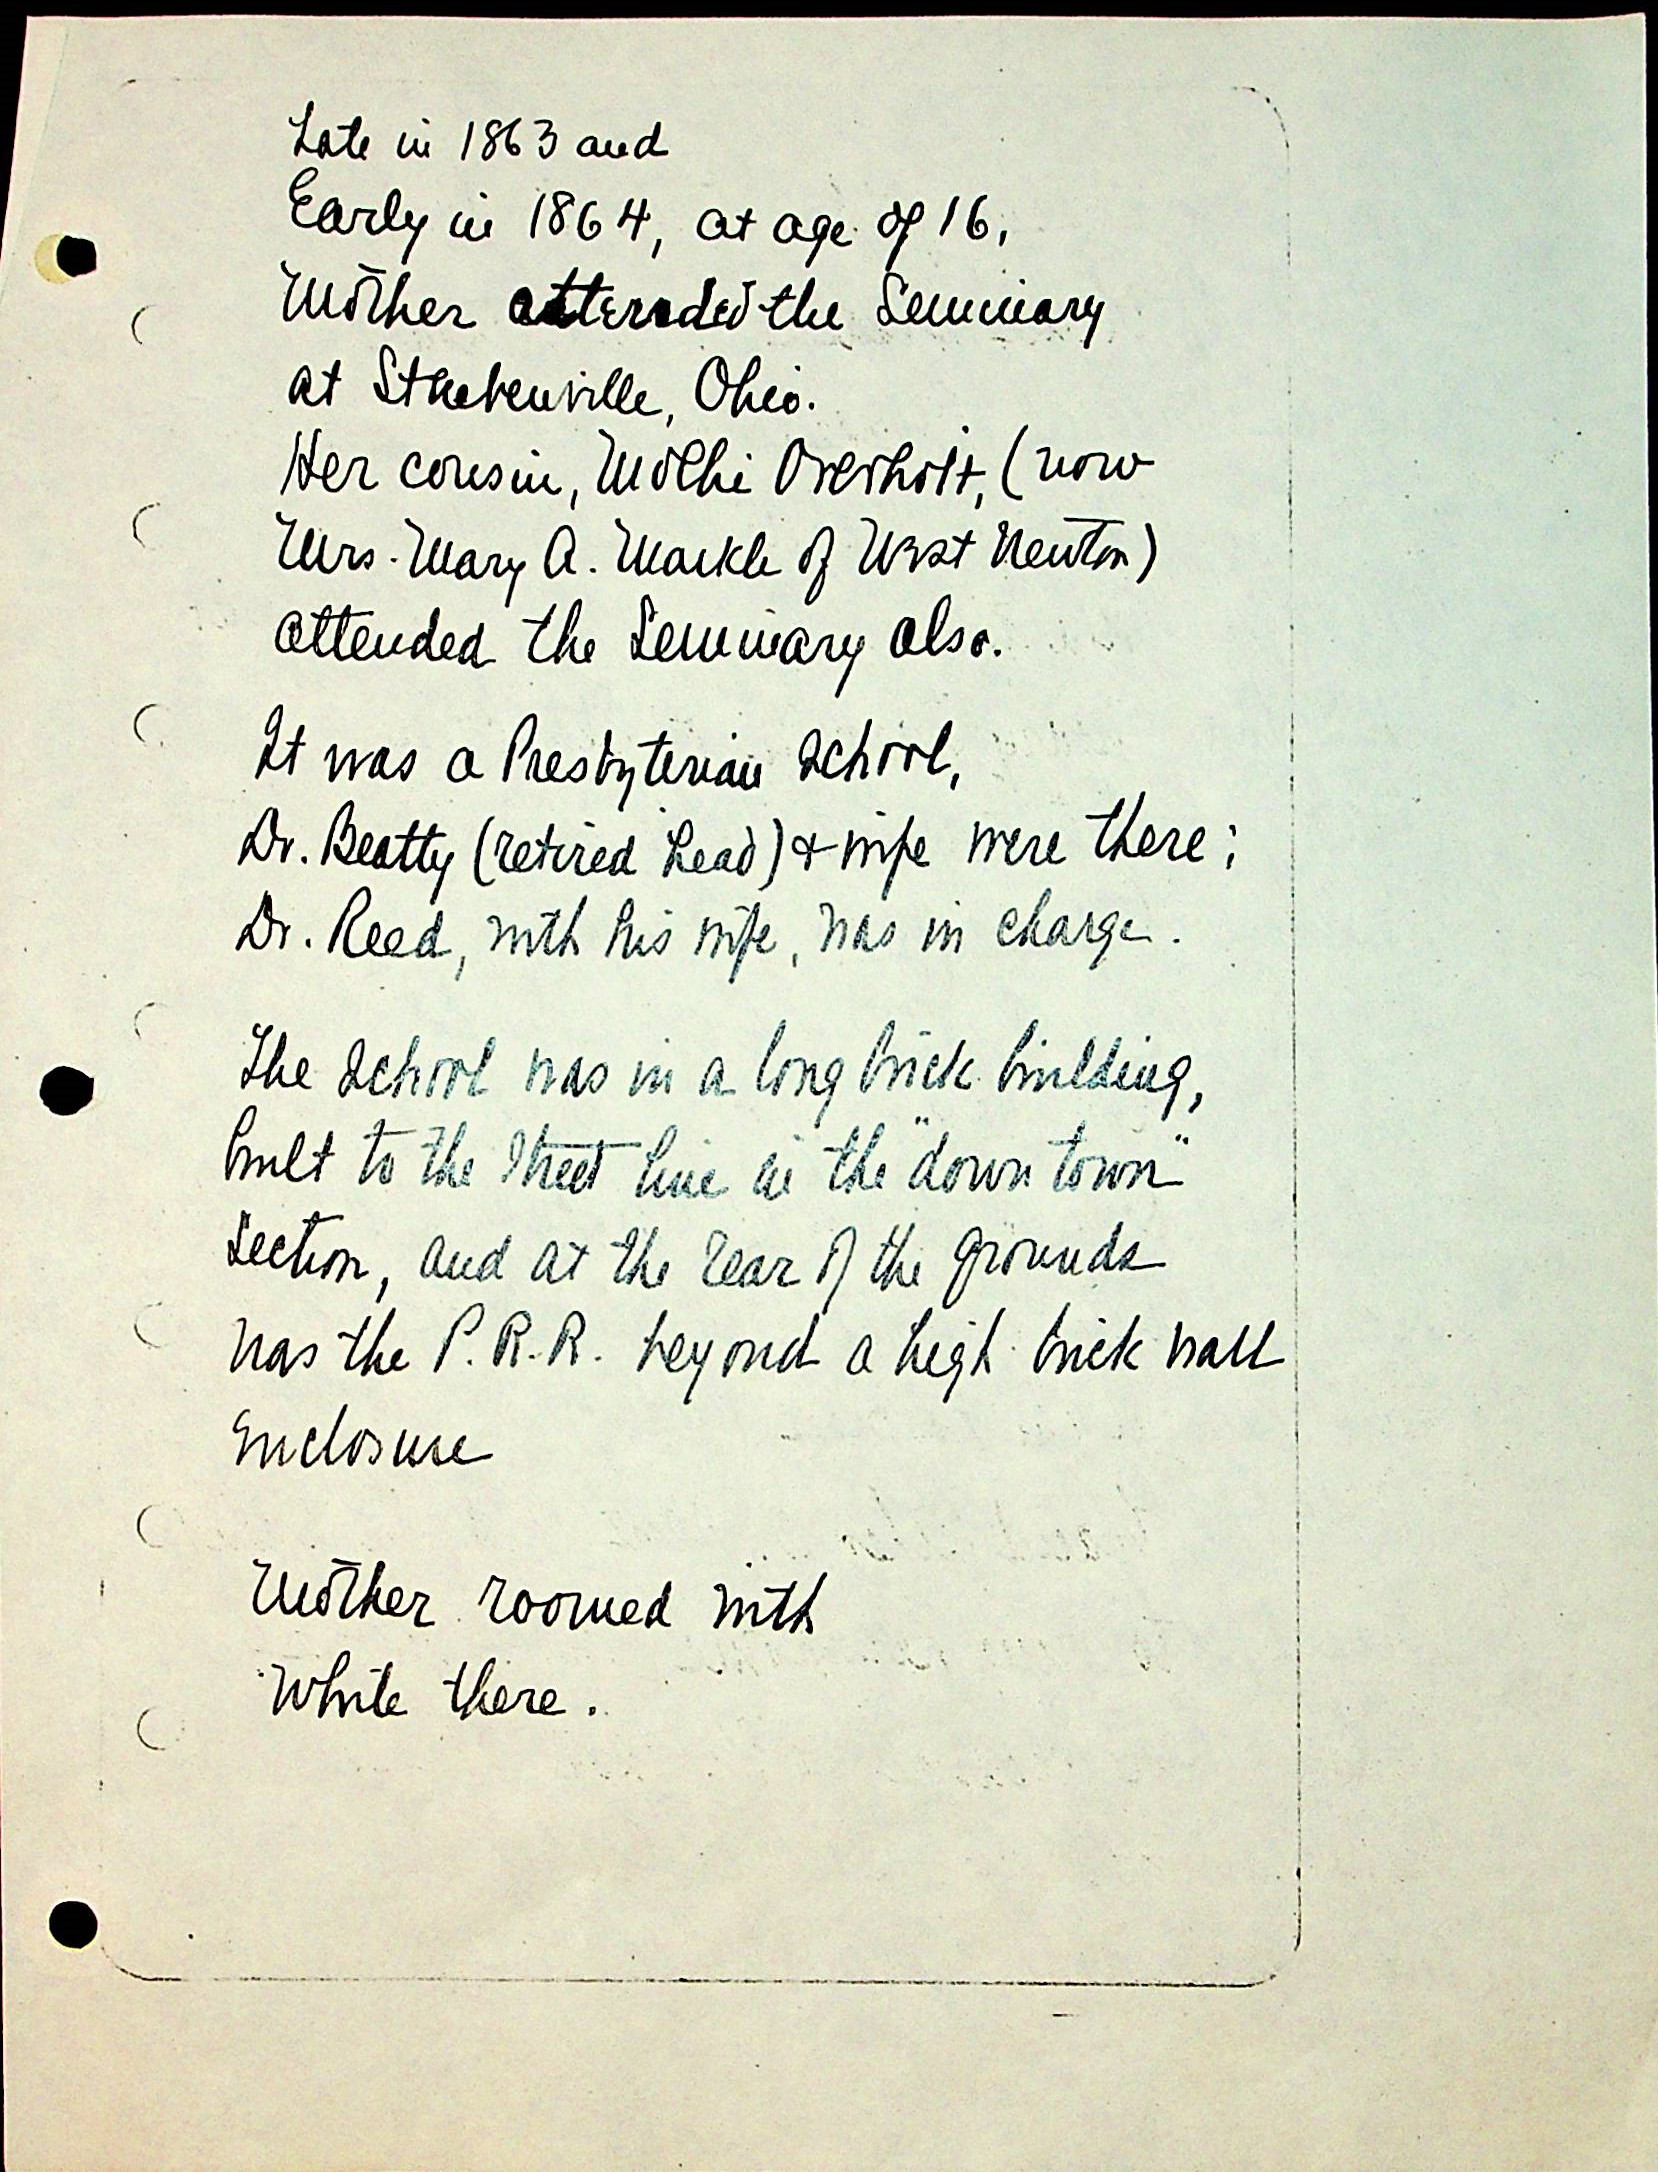 Late in 1863 and
Early in 1864, at age of 16,
Mother attended the Seminary
at Steubenville, Ohio.
Her cousin, Mollie Overholt, (now
Mrs. Mary A. Markle of West Newton)
attended the Seminary also.
It was a Presbyterian School,
Dr. Beatty (retired head) & wife were there;
Dr. Reed, with his wife, was in charge.
The School was in a long brick building,
built to the Street line in the "down town"
Section, and at the rear of the grounds
was the P.R.R. beyond a high brick wall
Enclosure
Mother roomed with
White there.